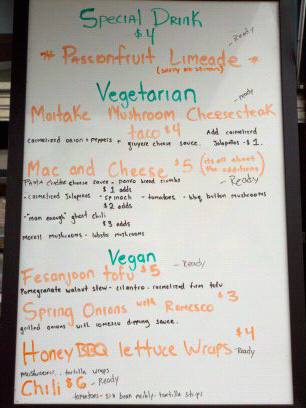 Special Drink
$4
* Passionfruit Limeade * - Ready
(sorry no straws)
Vegetarian
- ready
Maitake Mushroom Cheesesteak
taco $4
Add carmelized
carmelized onion + peppers + gruyere cheese sauce. Jalapeños - $1.
Mac and Cheese $5 (its all about the additions)
Pasta cheddar cheese sauce - panko bread crumbs - Ready
$1 adds
- carmelized Jalapenos - spinach - tomatoes - bbq button mushrooms
$2 adds
- "man enough" ghost chili
$3 adds
Morell mushrooms - lobster mushrooms
Vegan
Fesanjoon tofu $5 - Ready
Pomegranate walnut stew - cilantro - carmelized firm tofu
Spring Onions with Romesco $3
grilled onions with romesco dipping sauce.
$4
Honey BBQ lettuce Wraps - Ready
mushrooms.. tortilla wraps
Chili $6 - Ready
tomatoes - six bean medley - tortilla strips